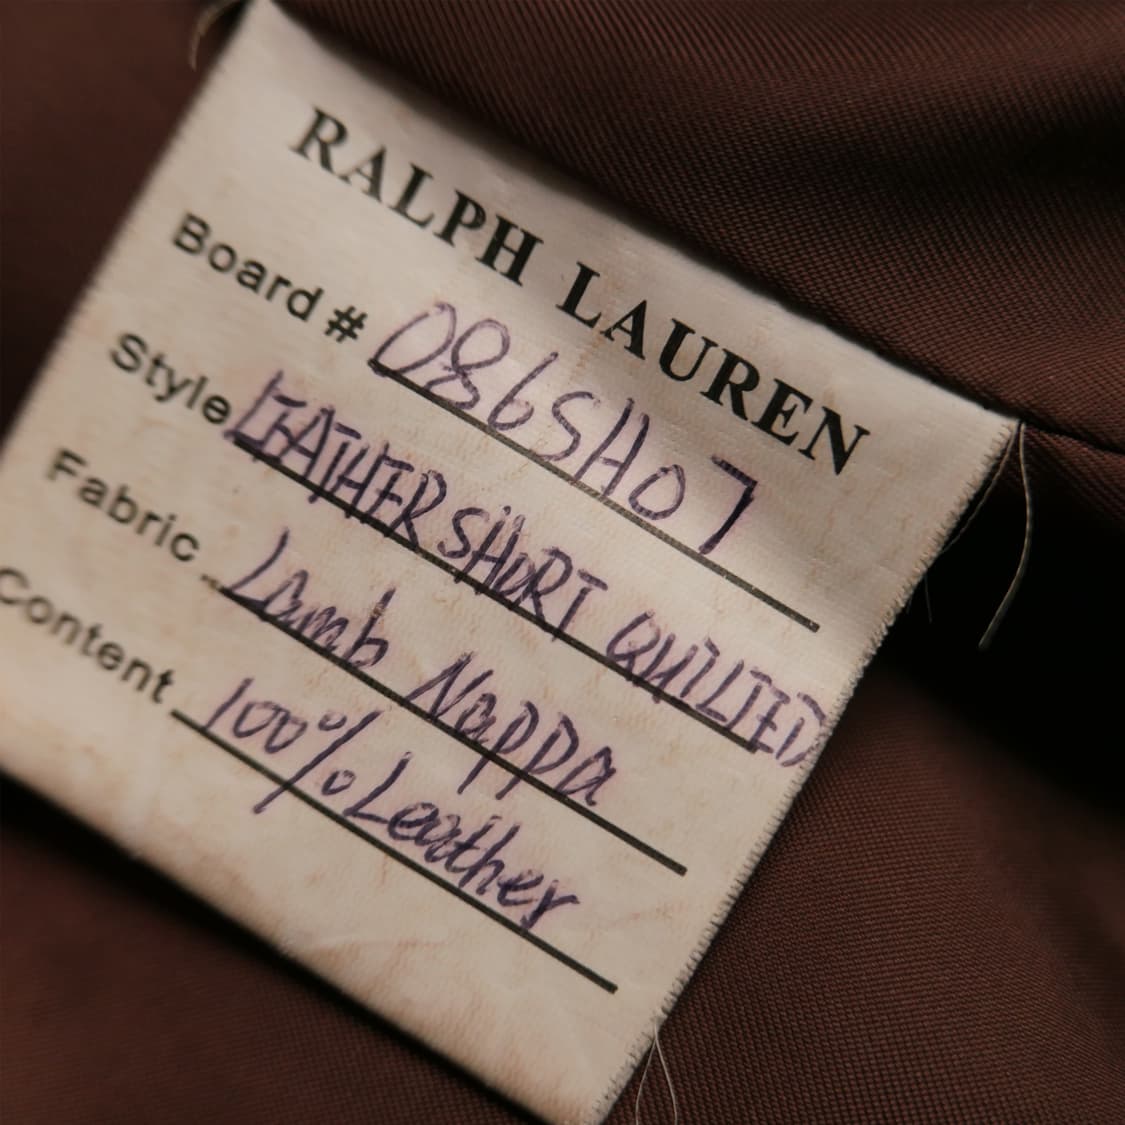 RALPH LAUREN
Board # 086SH07
Style LEATHER SHORT QUILTED
Fabric Lamb Nappa
Content 100% Leather